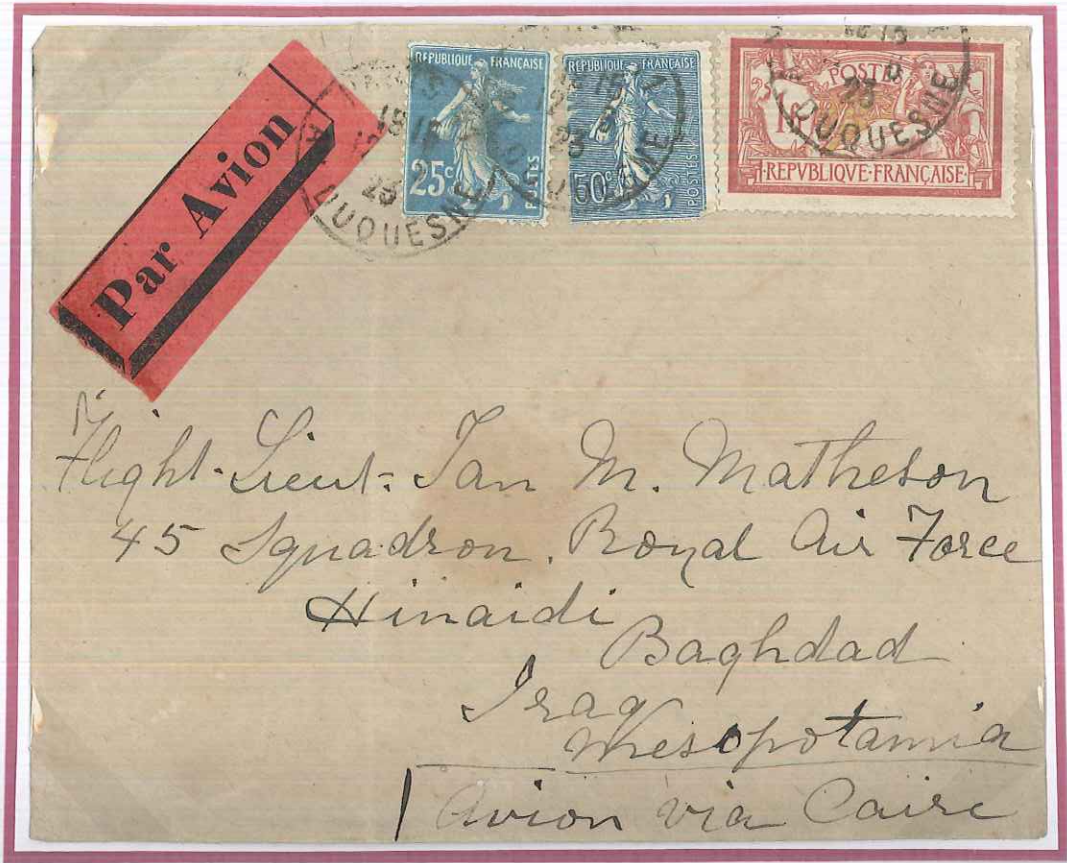 Par Avion
REPUBLIQUE FRANÇAISE
25c
POSTES
REPUBLIQUE FRANÇAISE
50c
POSTES
POSTES
REPVBLIQVE·FRANÇAISE
23
DUQUESNE
23
DUQUESNE
23
DUQUESNE
Flight-Lieut= Ian M. Matheson
45 Squadron. Royal Air Force
Hinaidi
Baghdad
Iraq
Mesopotamia
Avion via Caire